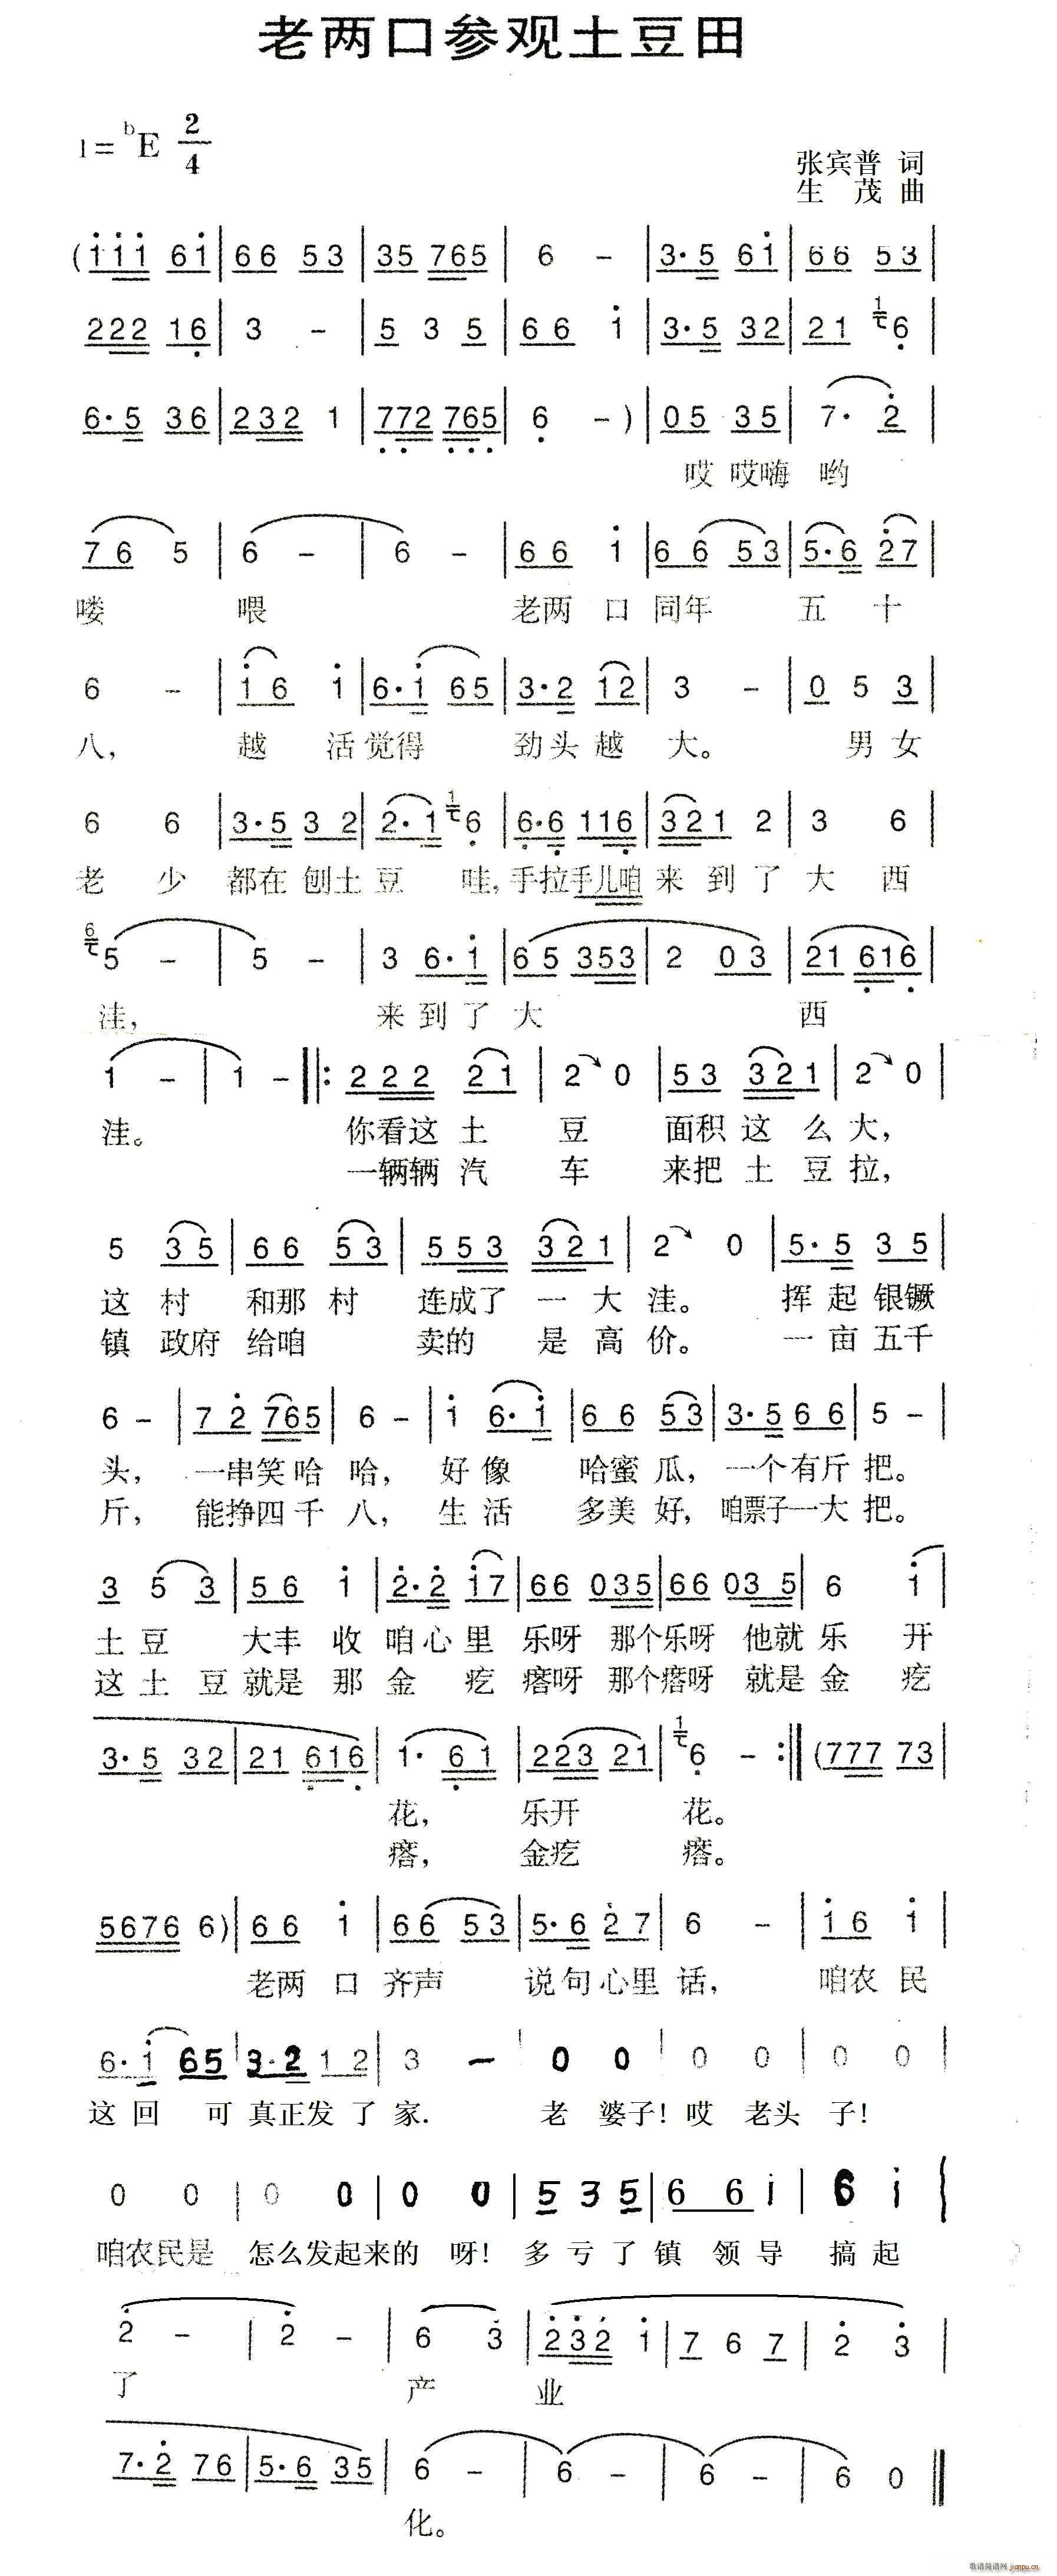 老两口参观土豆田
1=ᵇE 2/4
张宾普 词
生 茂 曲
(i i i 6 i | 6 6 5 3 | 3 5 7 6 5 | 6 – | 3· 5 6 i | 6 6 5 3 |
2 2 2 1 6 | 3 – | 5 3 5 | 6 6 i | 3· 5 3 2 | 2 1 1 6 |
6· 5 3 6 | 2 3 2 1 | 7 7 2 7 6 5 | 6 – ) | 0 5 3 5 | 7· 2 |
哎 哎嗨 哟
7 6 5 | 6 – | 6 – | 6 6 i | 6 6 5 3 | 5· 6 2 7 |
喽 喂 老两 口 同年 五 十
6 – | i 6 i | 6· i 6 5 | 3· 2 1 2 | 3 – | 0 5 3 |
八, 越 活 觉得 劲头 越 大。 男 女
6 6 | 3· 5 3 2 | 2· 1 1 6 | 6· 6 1 1 6 | 3 2 1 2 | 3 6 |
老 少 都在 刨土 豆 哇, 手拉手儿咱 来 到 了 大 西
6 5 – | 5 – | 3 6· i | 6 5 3 5 3 | 2 0 3 | 2 1 6 1 6 |
洼, 来 到 了 大 西
1 – | 1 – ‖: 2 2 2 2 1 | 2 0 | 5 3 3 2 1 | 2 0 |
洼。 你看这 土 豆 面积 这 么 大,
一辆辆 汽 车 来把 土 豆 拉,
5 3 5 | 6 6 5 3 | 5 5 3 3 2 1 | 2 0 | 5· 5 3 5 |
这 村 和那 村 连成了 一 大 洼。 挥 起 银镢
镇 政府 给咱 卖的 是 高 价。 一 亩 五千
6 – | 7 2 7 6 5 | 6 – | i 6· i | 6 6 5 3 | 3· 5 6 6 | 5 – |
头, 一串笑 哈 哈, 好 像 哈蜜 瓜, 一个有斤 把。
斤, 能挣四 千 八, 生 活 多美 好, 咱票子一大 把。
3 5 3 | 5 6 i | 2· 2 i 7 | 6 6 0 3 5 | 6 6 0 3 5 | 6 i |
土 豆 大丰 收 咱 心 里 乐呀 那个 乐呀 他就 乐 开
这 土 豆 就是 那 金 疙 瘩呀 那个 瘩呀 就是 金 疙
3· 5 3 2 | 2 1 6 1 6 | 1· 6 1 | 2 2 3 2 1 | 1 6 – :‖ (7 7 7 7 3 |
花, 乐开 花。
瘩, 金疙 瘩。
5 6 7 6 6 ) | 6 6 i | 6 6 5 3 | 5· 6 2 7 | 6 – | i 6 i |
老两 口 齐声 说句 心里 话, 咱农 民
6· i 6 5 | 3· 2 1 2 | 3 – | 0 0 | 0 0 | 0 0 |
这 回 可 真正发 了 家. 老 婆子! 哎 老头 子!
0 0 | 0 0 | 0 0 | 5 3 5 | 6 6 i | 6 i |
咱农民是 怎么发起来的 呀! 多 亏 了 镇 领 导 搞 起
2 – | 2 – | 6 3 | 2 3 2 i | 7 6 7 | 2 3 |
了 产 业
7· 2 7 6 | 5· 6 3 5 | 6 – | 6 – | 6 – | 6 0 ‖
化。
歌谱简谱网
jianpu.cn